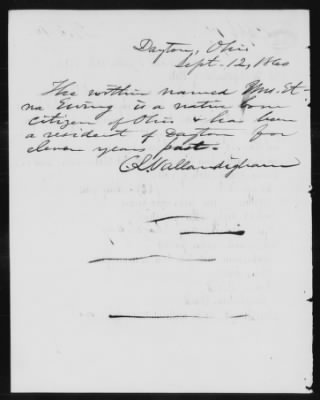 Dayton, Ohio
Sept. 12, 1860
The within named Wm. Et-
na Ewing is a native born
Citizen of Ohio & has been
a resident of Dayton for
eleven years past.
C L Vallandigham